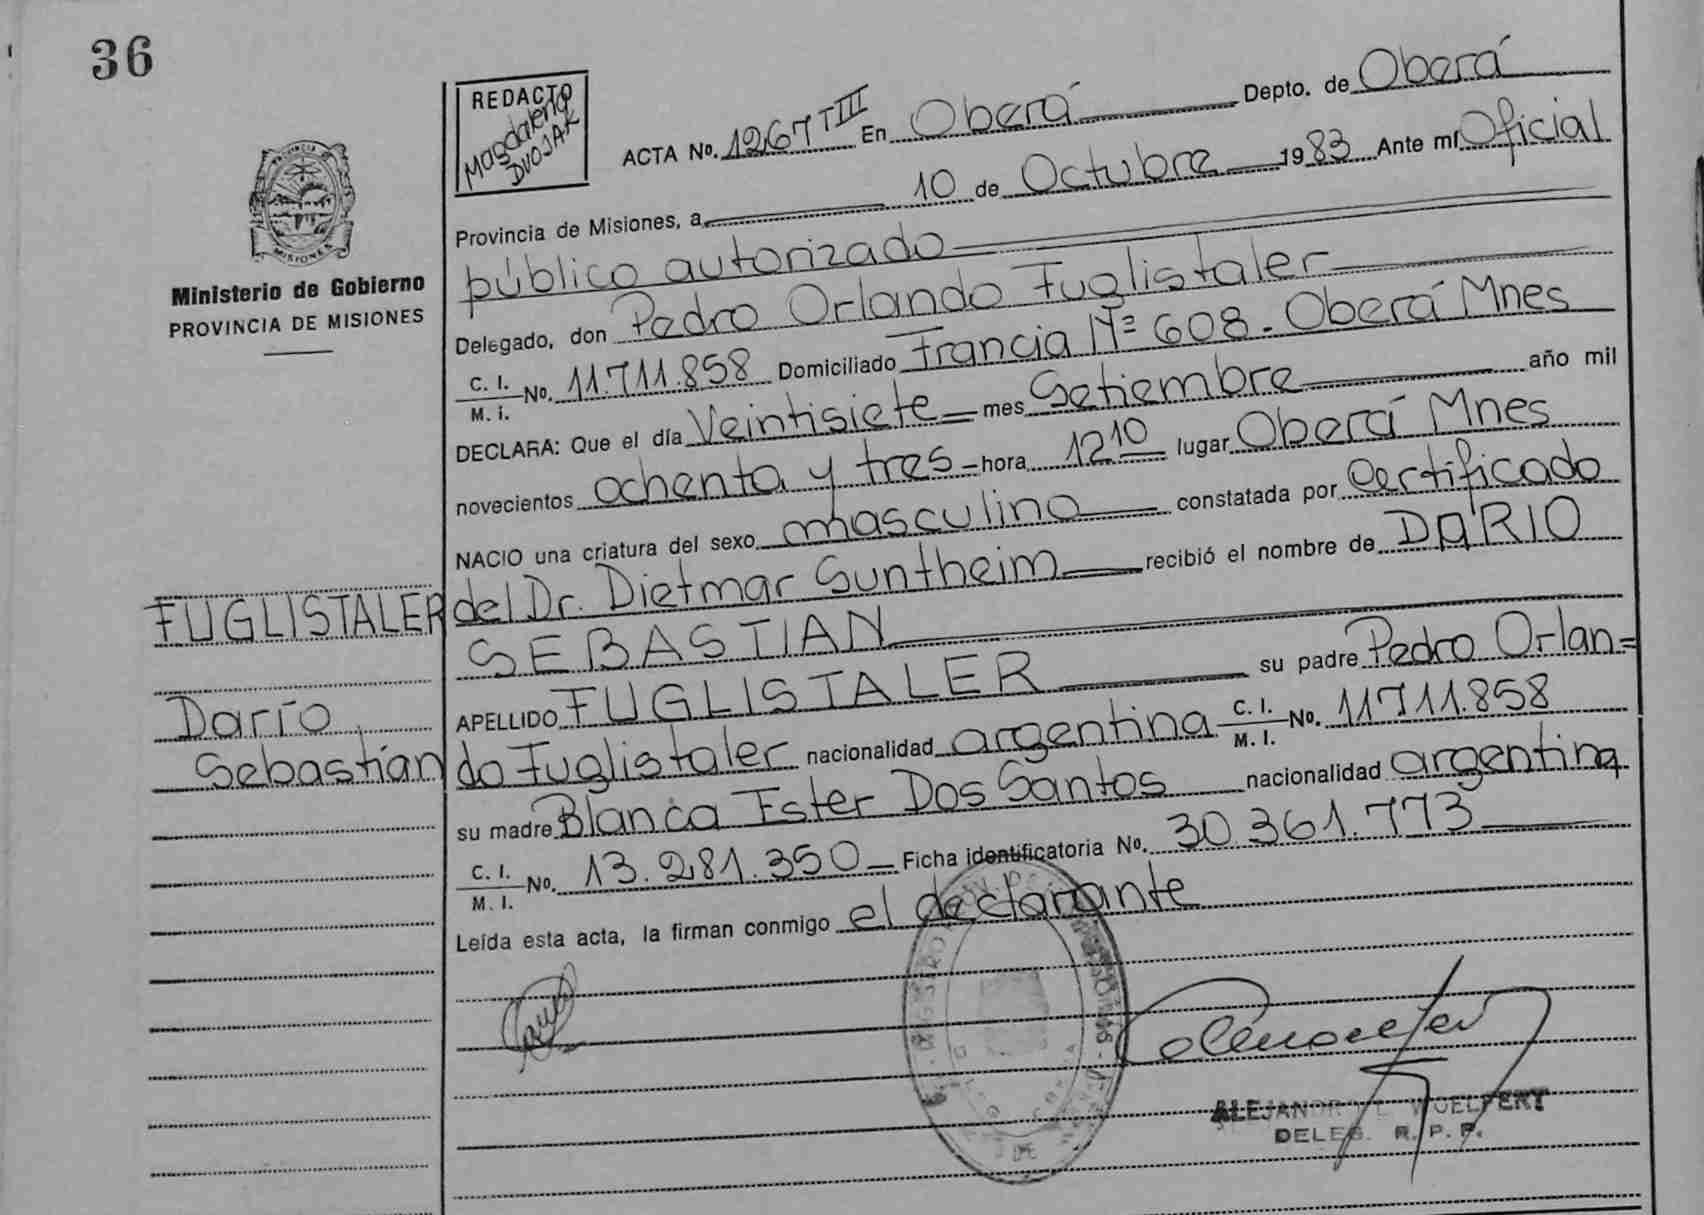 36
REDACTO
Magdalena
DVOJAK
ACTA No. 1267 TIII En Oberá Depto. de Oberá
Provincia de Misiones, a 10 de Octubre 1983 Ante mí Oficial
público autorizado
Delegado, don Pedro Orlando Fuglistaler
C. I. / M. I. No. 11.711.858 Domiciliado Francia Nº 608 - Oberá Mnes
DECLARA: Que el día Veintisiete mes Setiembre año mil
novecientos ochenta y tres hora 12 10 lugar Oberá Mnes
NACIO una criatura del sexo masculino constatada por Certificado
del Dr. Dietmar Suntheim recibió el nombre de DARIO
SEBASTIAN
APELLIDO FUGLISTALER su padre Pedro Orlan=
do Fuglistaler nacionalidad argentina C. I. / M. I. No. 11711.858
su madre Blanca Ester Dos Santos nacionalidad argentina
C. I. / M. I. No. 13.281.350 Ficha identificatoria No. 30.361.773
Leída esta acta, la firman conmigo el declarante
MISIONES
Ministerio de Gobierno
PROVINCIA DE MISIONES
FUGLISTALER
Darío
Sebastían
ALEJANDRO WOELFERT
DELEG. R. P. P.